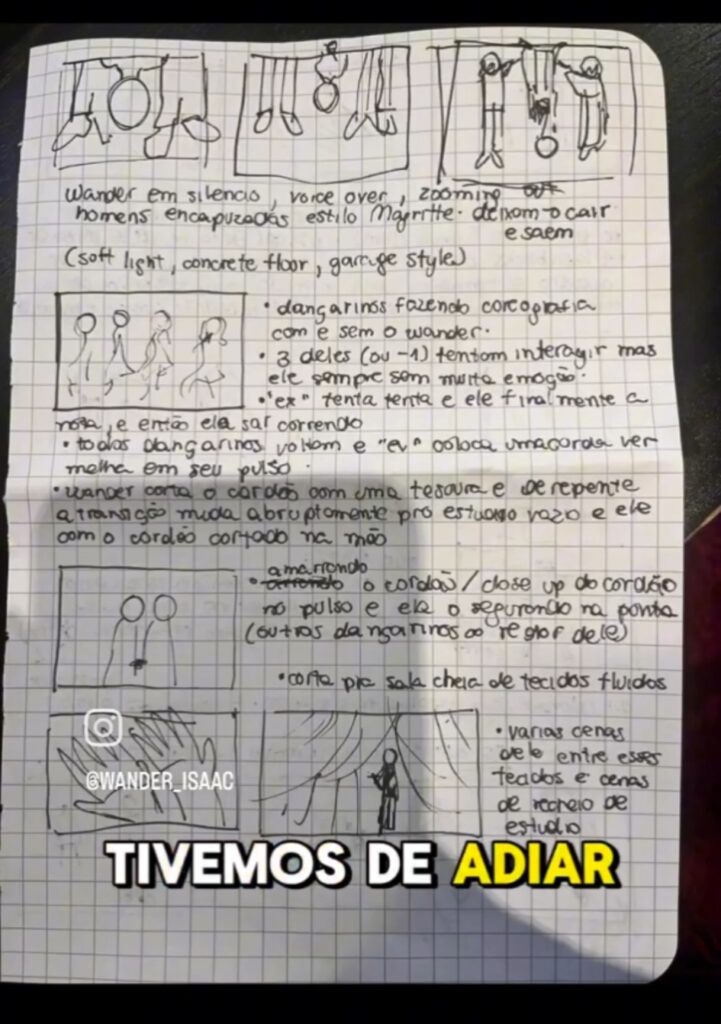 Wander em silencio, voice over, zooming out
homens encapuzados estilo Magritte. deixam-o cair
e saem
(soft light, concrete floor, garage style)
• dançarinos fazendo coreografia
com e sem o wander.
• 3 deles (ou -1) tentam interagir mas
ele sempre sem muita emoção.
• "ex" tenta tenta e ele finalmente a
nota, e então ela sai correndo
• todos dançarinos voltam e "ex" coloca uma corda ver
melha em seu pulso.
• wander corta o cordão com uma tesoura e de repente
a transição muda abruptamente pro estudio vazo e ele
com o cordão cortado na mão
amarrando
• o cordão / close up do cordão
no pulso e ela o segurando na ponta
(outros dançarinos ao redor dele)
• corta pra sala cheia de tecidos fluidos
• varias cenas
dele entre esses
tecidos e cenas
de recheio de
estudio
@WANDER_ISAAC
TIVEMOS DE ADIAR